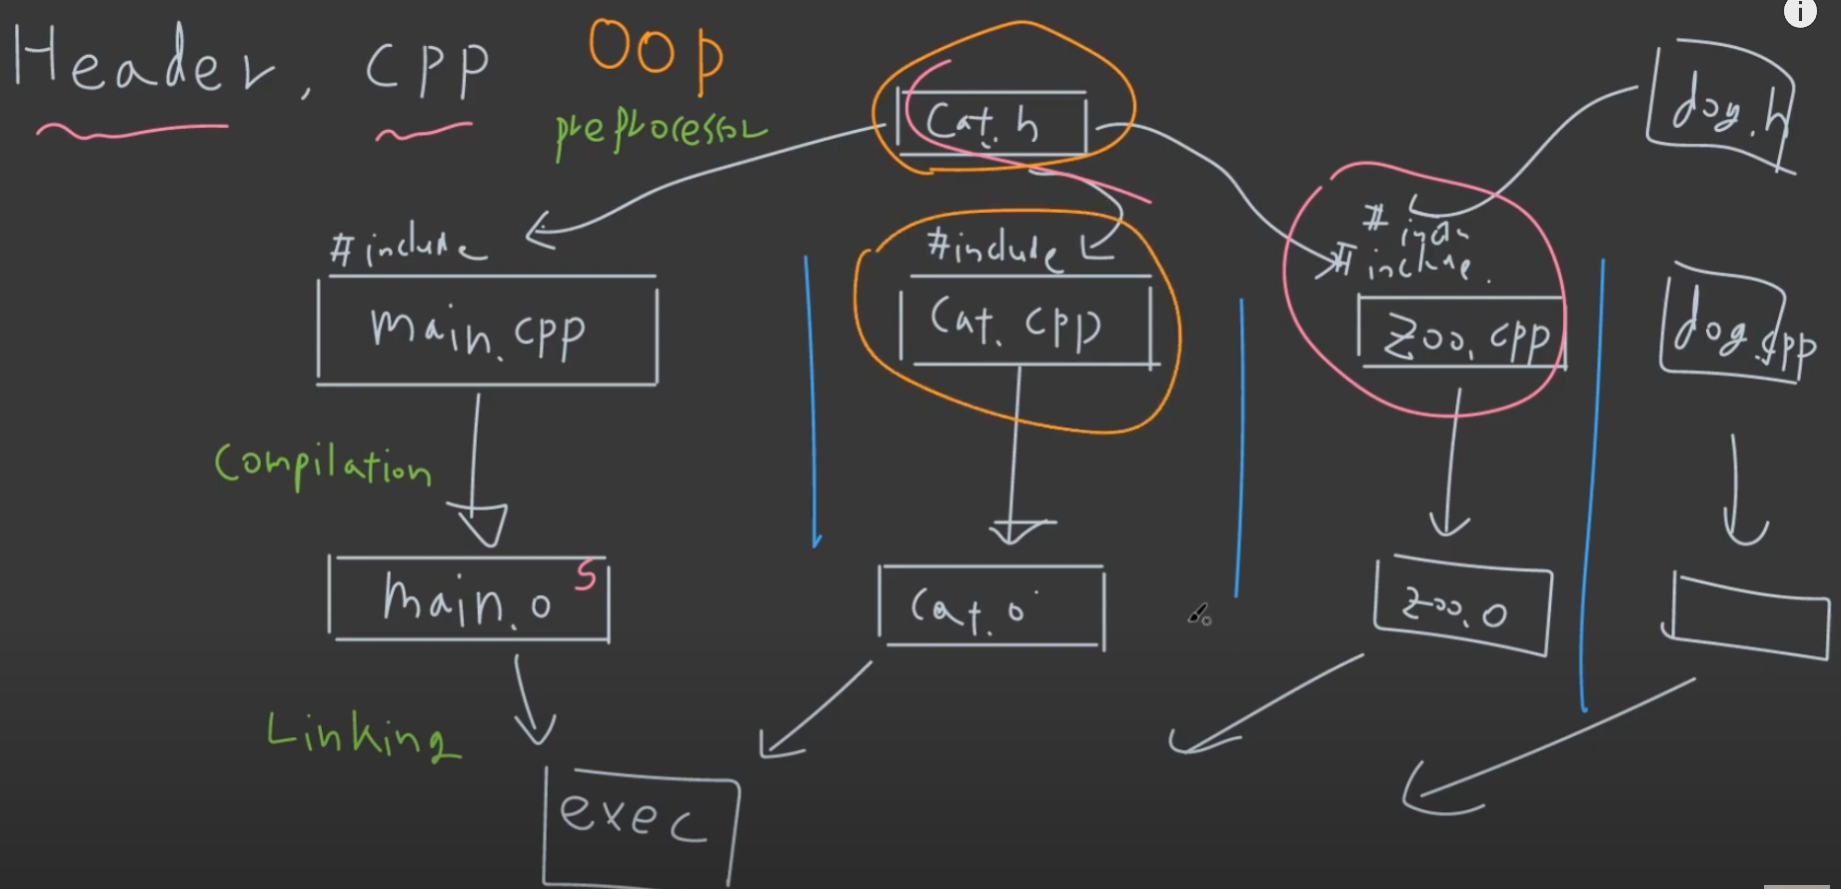 Header, cpp
OOP
preprocessor
Cat.h
dog.h
#include
#include
#
#include
main.cpp
Cat.cpp
Zoo.cpp
dog.cpp
Compilation
main.o
s
Cat.o
Zoo.o
Linking
exec